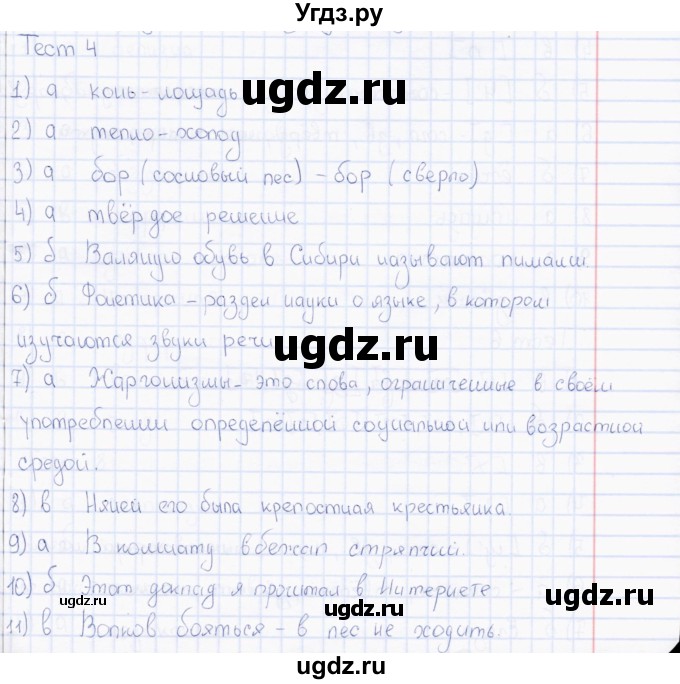 Угдз.ру
Тест 4
1) а конь - лошадь
ugdz.ru
2) а тепло - холод
3) а бор (сосновый лес) - бор (сверло)
4) а твёрдое решение
5) б Валяную обувь в Сибири называют пимами.
6) б Фонетика - раздел науки о языке, в котором
изучаются звуки речи
ugdz.ru
7) а Жаргонизмы - это слова, ограниченные в своём
употреблении определённой социальной или возрастной
средой.
8) в Няней его была крепостная крестьянка.
9) а В комнату вбежал стряпчий.
10) б Этот доклад я прочитал в Интернете
ugdz.ru
ugdz.ru
11) в Волков бояться - в лес не ходить.
ugdz.ru